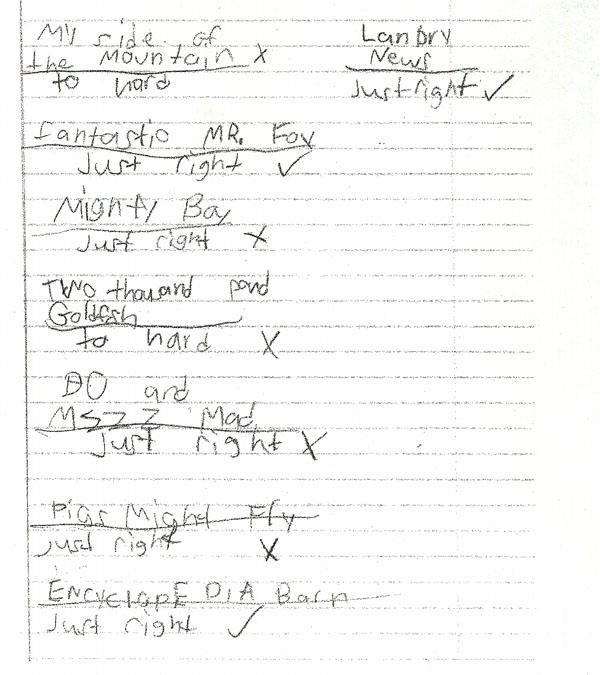 MY side of
the Mountain X
to hard
LanDry
News
Just right ✓
fantastic MR. Fox
Just right ✓
Mighty Boy
Just right X
TWO thousand pond
Goldfish
to hard X
and
Mad
Just right X
Pigs Might Fly
just right X
ENCYCLOPEDIA
Just right ✓